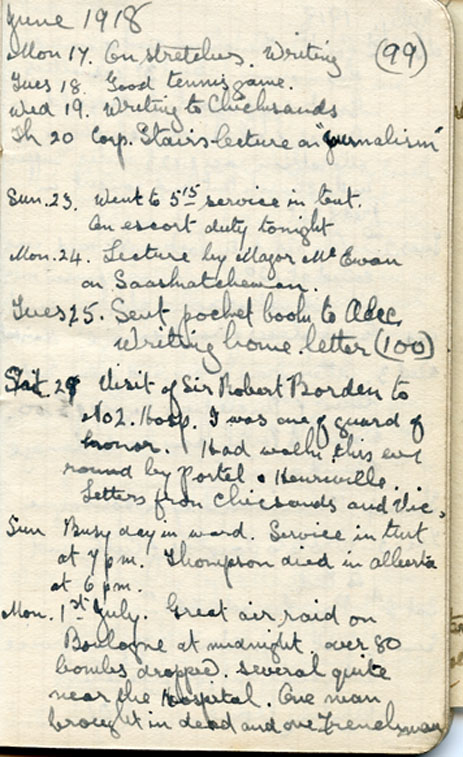 June 1918
Mon 17. On stretchers. Writing (99)
Tues 18. Good tennis game.
Wed 19. Writing to Chicksands
Th 20 Corp. Stairs lecture on "Journalism"
Sun. 23. Went to 5 15 service in tent.
On escort duty tonight
Mon. 24. Lecture by Major McEwan
on Saaskatchewan.
Tues 25. Sent pocket book to Adec.
Writing home. letter (100)
Sat. 29 Visit of Sir Robert Borden to
No 2. Hosp. I was one of guard of
honor. Had walk this eve
round by Portel & Henriville.
Letters from Chicsands and Vic.
Sun Busy day in ward. Service in tent
at 7 pm. Thompson died in alberta
at 6 pm.
Mon. 1st July. Great air raid on
Boulogne at midnight. over 80
bombs dropped. several quite
near the Hospital. One man
brought in dead and one Frenchman